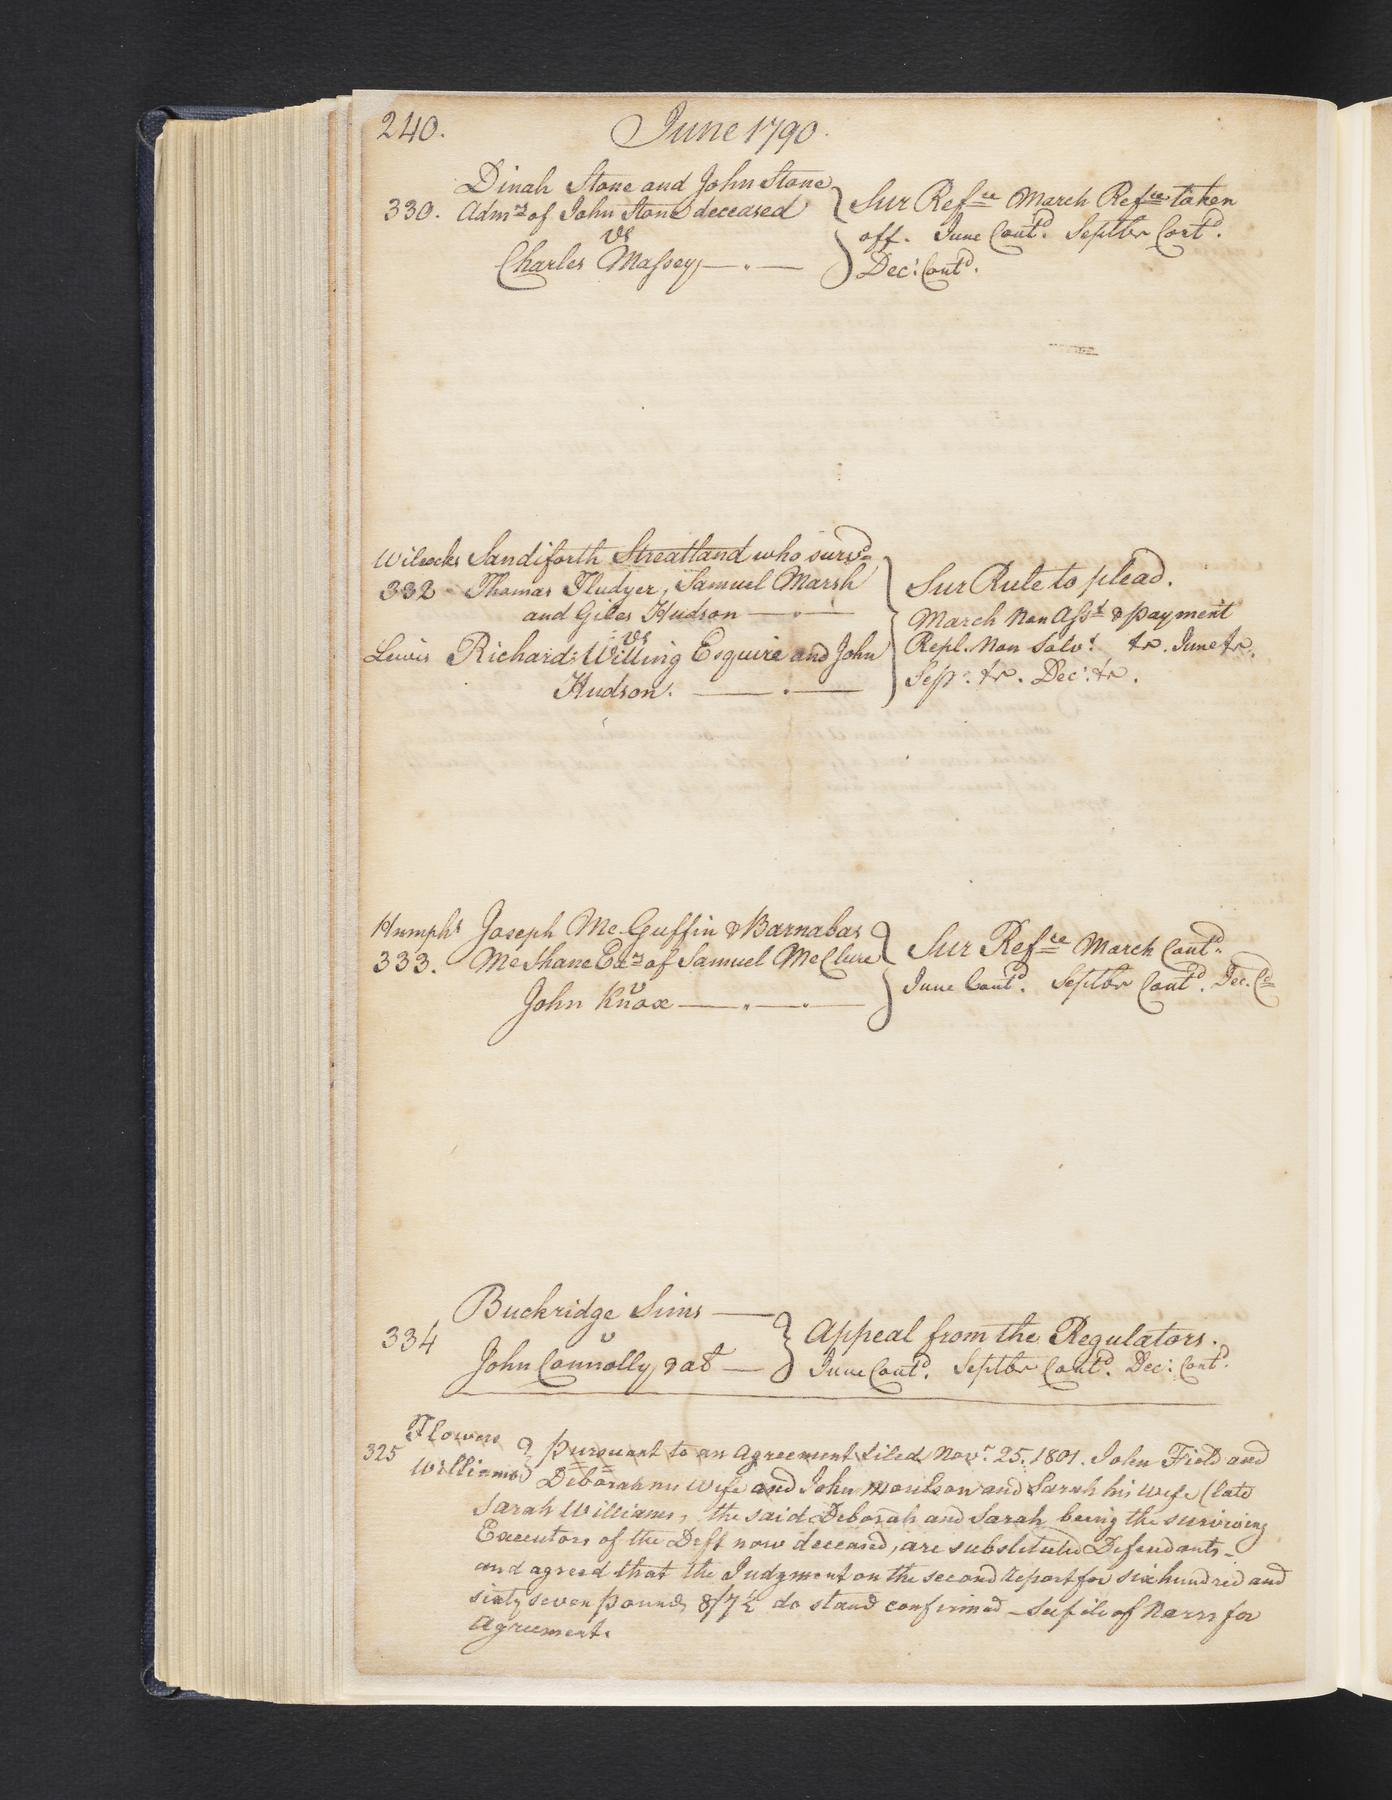 240. June 1790.
Dinah Stone and John Stone
330. Admrs of John Stone deceased
vs
Charles Massey
Sur Refce March Refce taken
off. June Contd. Septbr Contd.
Decr Contd.
Wilcocks Sandiforth Streatland who survd
332 Thomas Fludyer, Samuel Marsh
and Giles Hudson
vs
Lewis Richard Willing Esquire and John
Hudson.
Sur Rule to plead.
March Non Asst & payment
Repl. Non Solvt &c. June &c.
Sepr. &c. Decr. &c.
Humphs Joseph McGuffin & Barnabas
333. McShane Exrs of Samuel McClure
v
John Knox
Sur Refce March Contd.
June Contd. Septbr Contd. Dec. Cd
Buckridge Sims
334 v
John Connolly & al
Appeal from the Regulators.
June Contd. Septbr Contd. Decr Contd.
325 Flowers
Williams
Pursuant to an Agreement filed Novr. 25. 1801. John Field and
Deborah his Wife and John Moulson and Sarah his Wife (late
Sarah Williams, the said Deborah and Sarah being the surviving
Executors of the Deft now deceased, are substituted Defendants
and agreed that the Judgment on the second Report for six hundred and
sixty seven pounds 8/7½ do stand confirmed — See file of Narrs for
Agreement.